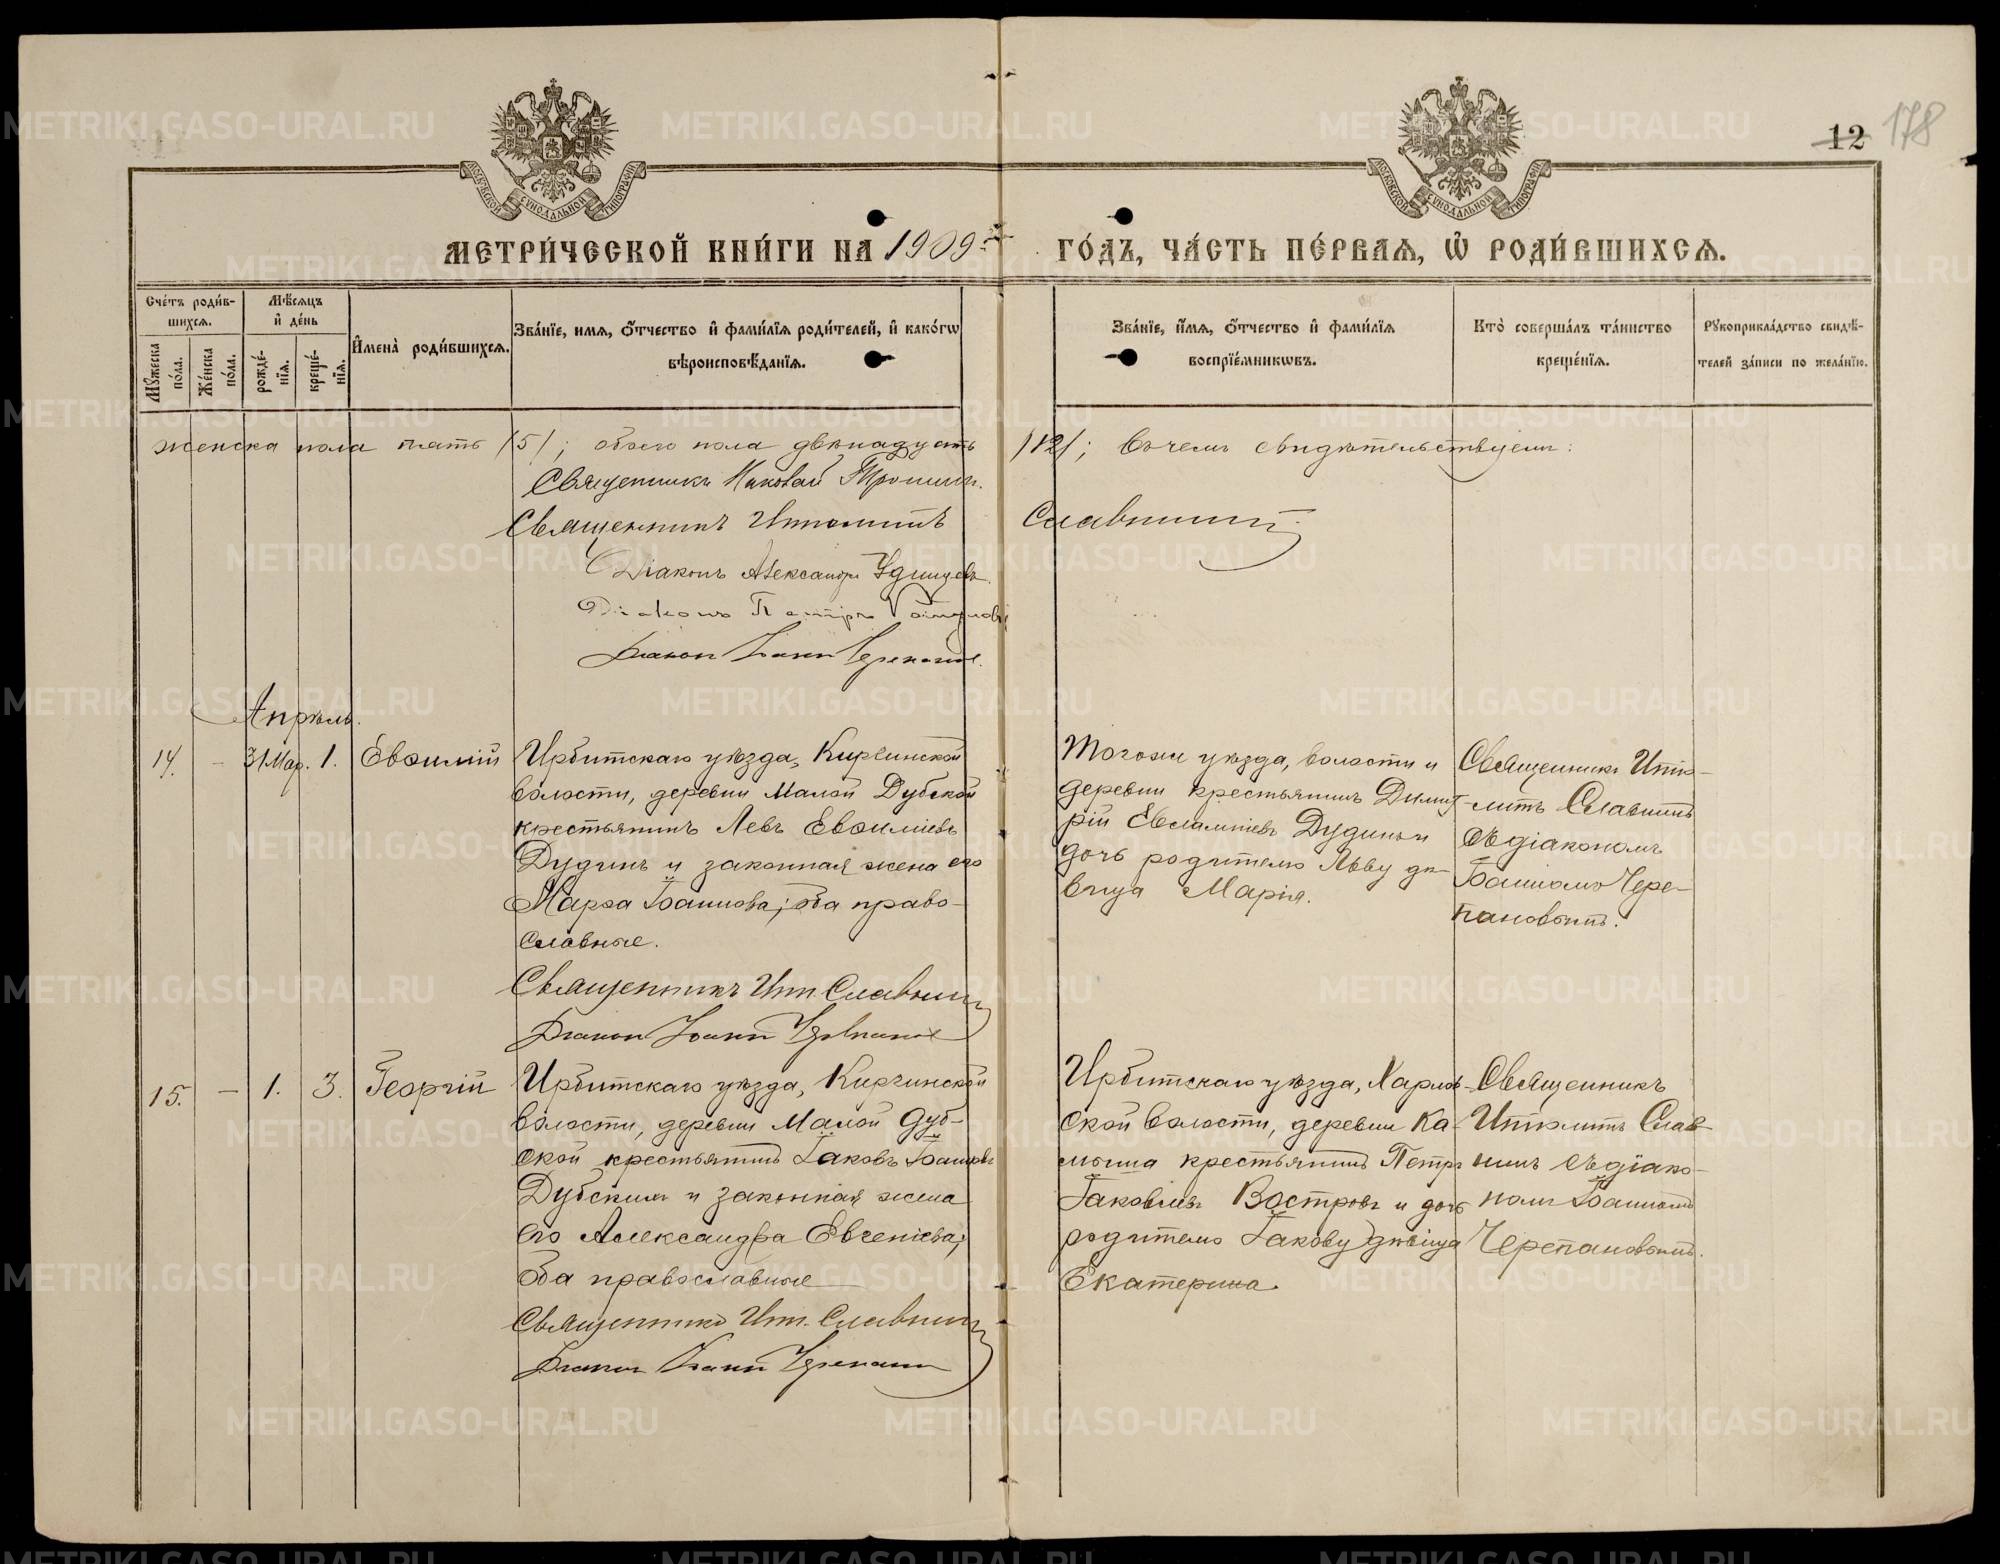 12 178
МОСКОВСКОЙ СѴНОДАЛЬНОЙ ТИПОГРАФІИ
МОСКОВСКОЙ СѴНОДАЛЬНОЙ ТИПОГРАФІИ
МЕТРИ́ЧЕСКОЙ КНИ́ГИ НА 1909 ГО́ДЪ, ЧА́СТЬ ПЕ́РВАѦ, Ѡ РОДИ́ВШИХСѦ.
Сче́тъ роди́в-
шихсѧ.
Мѣ́сѧцъ
и де́нь
Мꙋ́жеска по́ла.
Же́нска по́ла.
рожде́-нїѧ.
креще́-нїѧ.
Имена̀ роди́вшихсѧ.
Зва́нїе, имѧ, ѻ́тчество и фами́лїѧ роди́телей, и како́гѡ
вѣроисповѣ́данїѧ.
Зва́нїе, и́мѧ, ѻ́тчество и фами́лїѧ
воспрїе́мникѡвъ.
Кто̀ соверша́лъ та́инство
креще́нїѧ.
Рꙋкоприкла́дство свидѣ́-
телей за́писи по жела́нїю.
женска пола пять /5/; обоего пола двѣнадцать /12/; въ чемъ свидѣтельствуемъ:
Священникъ Николай Трошинъ.
Священникъ Ипполитъ Славнинъ.
Діаконъ Александръ Удинцевъ.
Діаконъ Петръ
Діаконъ Іоаннъ Черепановъ.
Апрѣль.
14. – 31 Мар. 1. Евѳимій
Ирбитскаго уѣзда, Киргинской
волости, деревни Малой Дубской
крестьянинъ Левъ Евѳиміевъ
Дудинъ и законная жена его
Марѳа Іоаннова; оба право-
славные.
Священникъ Ип. Славнинъ
Діаконъ Іоаннъ Черепановъ
Тогоже уѣзда, волости и
деревни крестьянинъ Димит-
рій Евлампіевъ Дудинъ и
дочь родителю Льву дѣ-
вица Марія.
Священникъ Иппо-
литъ Славнинъ
съ діакономъ
Іоанномъ Чере-
пановымъ.
15. – 1. 3. Георгій
Ирбитскаго уѣзда, Киргинской
волости, деревни Малой Дуб-
ской крестьянинъ Іаковъ Іоанновъ
Дубскихъ и законная жена
его Александра Евгеніева;
оба православные
Священникъ Ип. Славнинъ
Діаконъ Іоаннъ Черепановъ
Ирбитскаго уѣзда, Харлов-
ской волости, деревни Ка-
мьгина крестьянинъ Петръ
Іаковлевъ Востровъ и дочь
родителю Іакову дѣвица
Екатерина.
Священникъ
Ипполитъ Слав-
нинъ съ діако-
номъ Іоанномъ
Черепановымъ.
METRIKI.GASO-URAL.RU